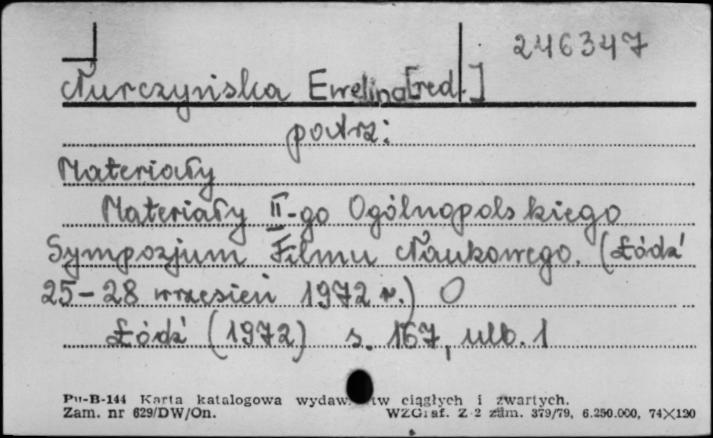 246347
Nurczyńska Ewelina [red.]
patrz:
Materiały
Materiały II-go Ogólnopolskiego
Sympozjum Filmu Naukowego. (Łódź
25-28 wrzesień 1972 r.)
Łódź (1972) s. 167, ulb. 1
Pu-B-144 Karta katalogowa wydaw tw ciągłych i zwartych.
Zam. nr 629/DW/On. WZGraf. Z 2 zam. 379/79, 6.250.000, 74×120